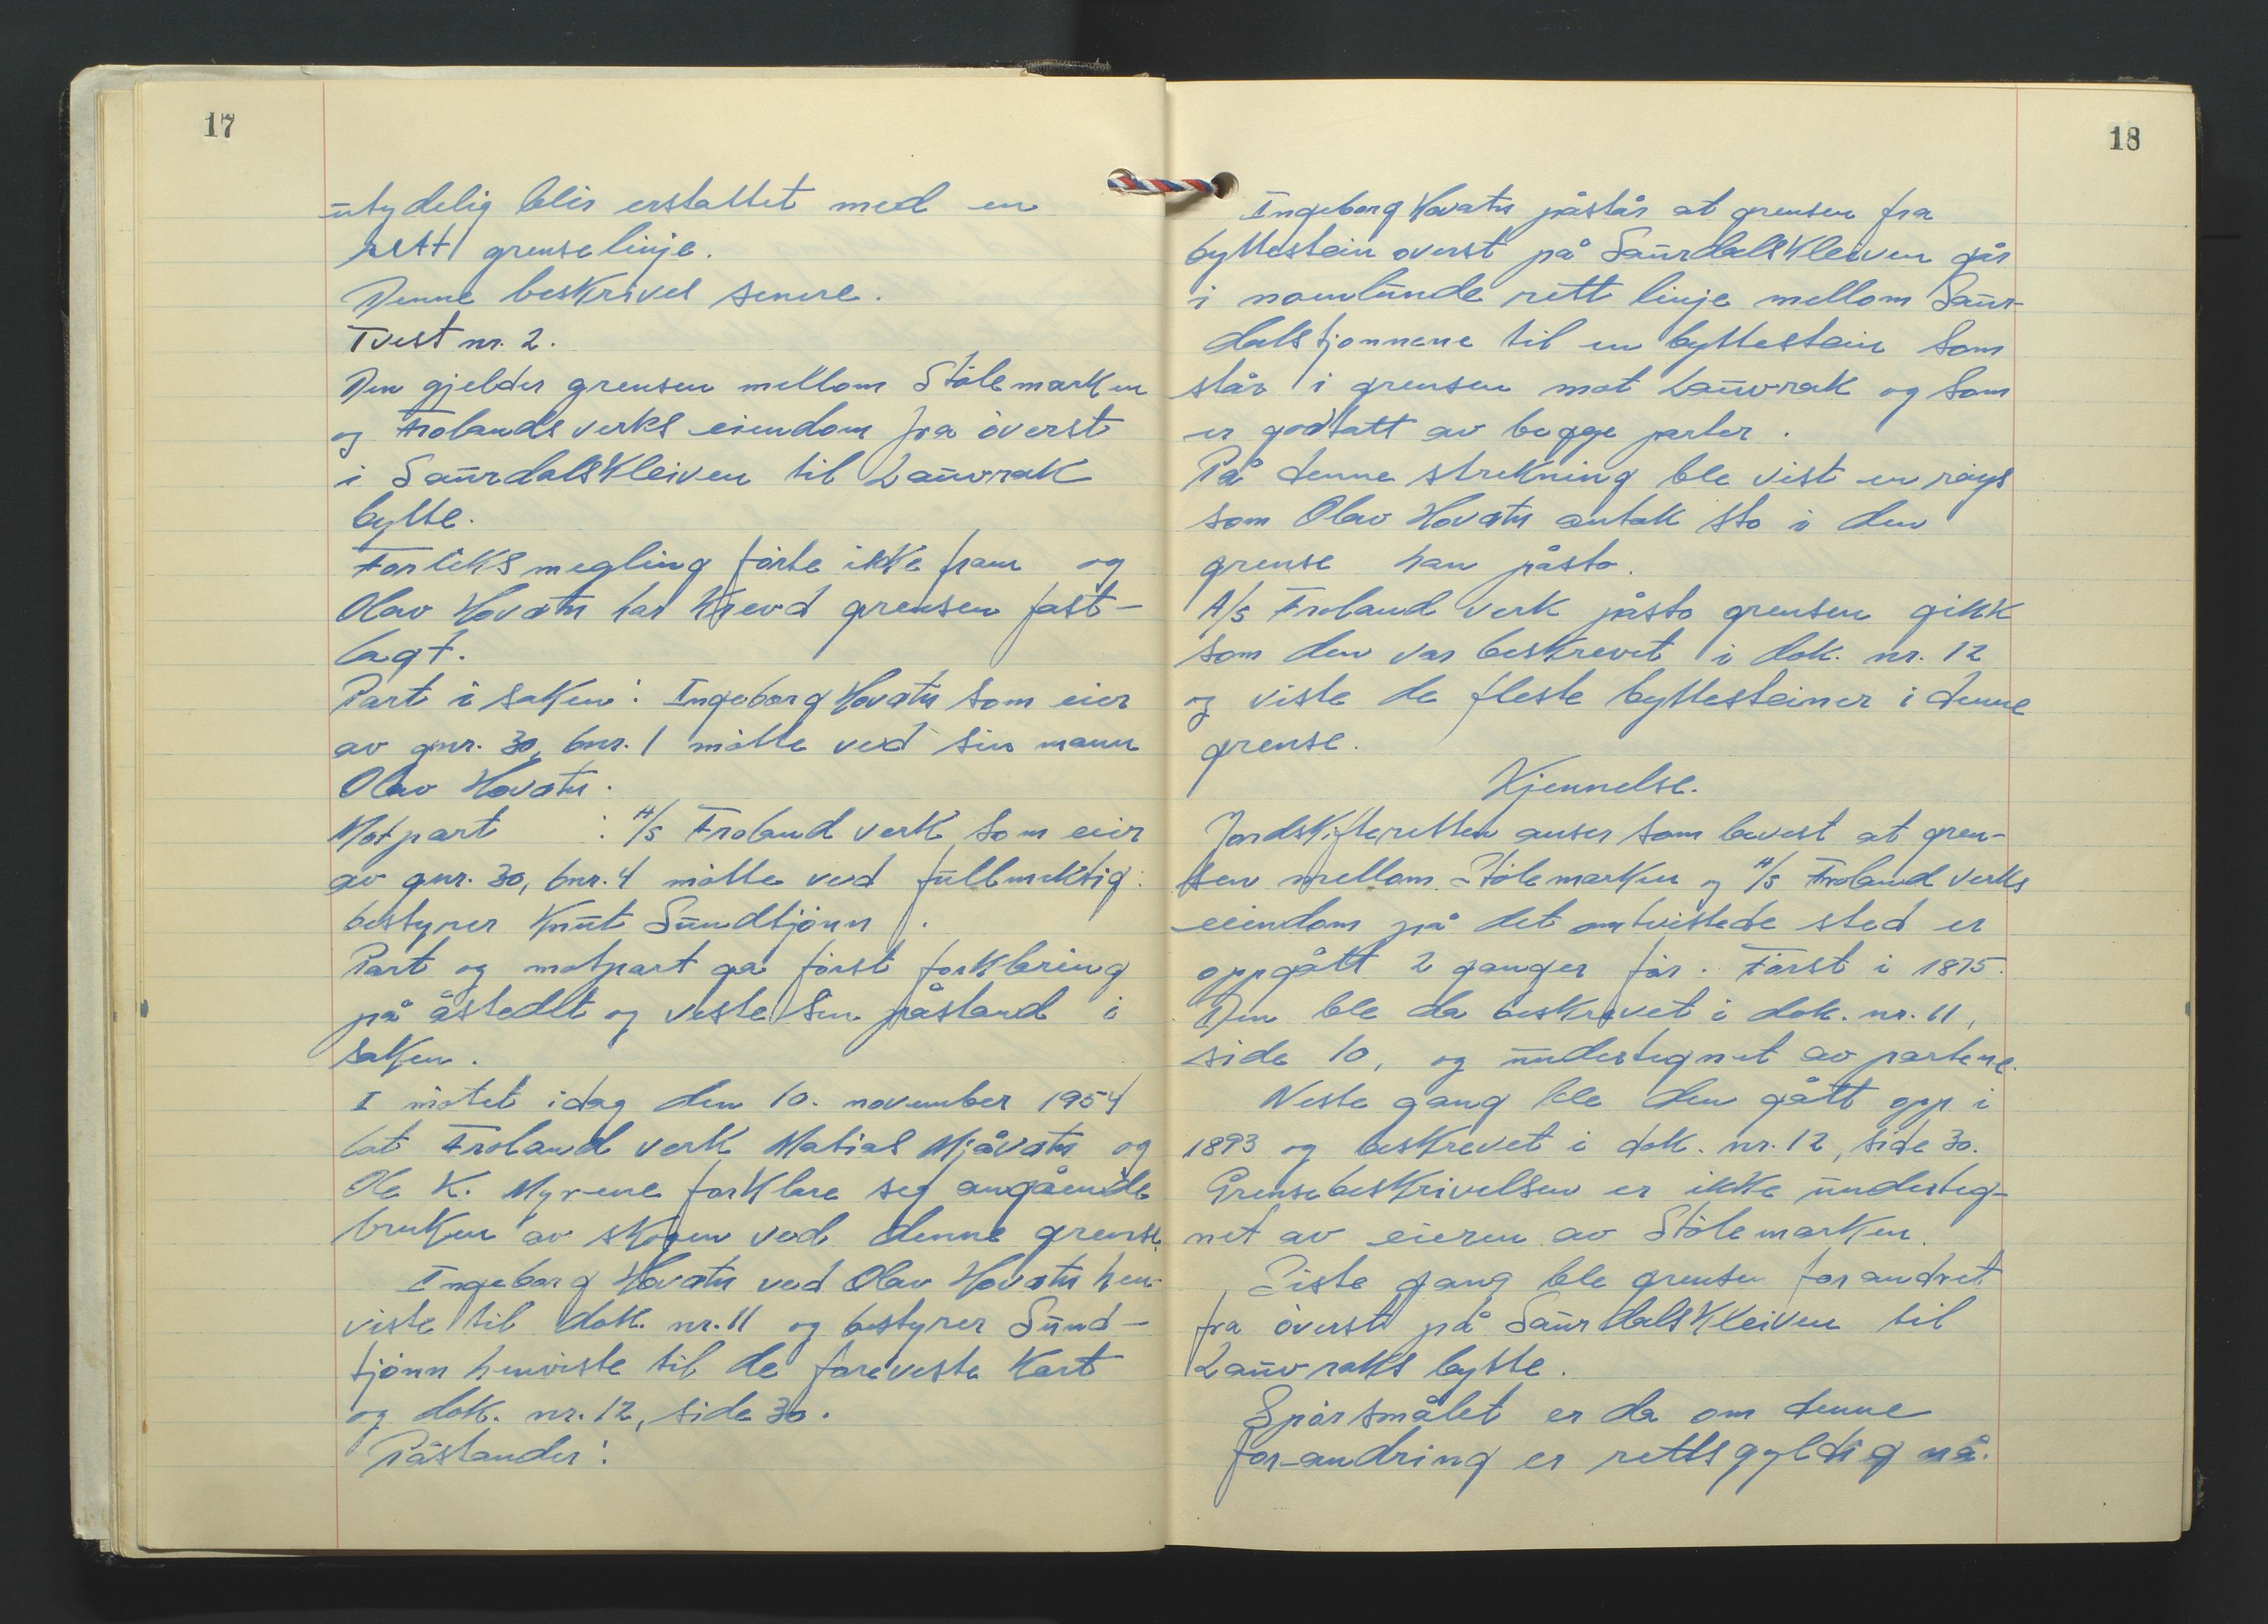 17
utydelig blir erstattet med en
rett grenselinje.
Denne beskrives senere.
Tvist nr. 2.
Den gjelder grensen mellom Stölemarken
og Frolands verks eiendom fra överst
i Saurdalskleiven til Lauvrak
bytte.
Forliksmegling förte ikke fram og
Olav Hovatn har krevd grensen fast-
lagt.
Part i saken: Ingeborg Hovatn som eier
av gnr. 30, bnr. 1 mötte ved sin mann
Olav Hovatn.
Motpart : A/S Froland verk som eier
av gnr. 30, bnr. 4 mötte ved fullmektig:
bestyrer Knut Sundtjönn.
Part og motpart ga först forklaring
på åstedet og viste sin påstand i
saken.
I mötet idag den 10. november 1954
lot Froland verk Matias Mjåvatn og
Ole K. Myrene forklare seg angående
bruken av skogen ved denne grense.
Ingeborg Hovatn ved Olav Hovatn hen-
viste til dok. nr. 11 og bestyrer Sund-
tjönn henviste til de foreviste kart
og dok. nr. 12, side 30.
Påstander:
18
Ingeborg Hovatn påstår at grensen fra
byttestein överst på Saurdalskleiven går
i noenlunde rett linje mellom Saur-
dalstjönnene til en byttestein som
står i grensen mot Lauvrak og som
er godtatt av begge parter.
På denne strekning ble vist en röys
som Olav Hovatn antok sto i den
grense han påsto.
A/S Froland verk påsto grensen gikk
som den var beskrevet i dok. nr. 12
og viste de fleste byttesteiner i denne
grense.
Kjennelse.
Jordskifteretten anser som bevist at gren-
sen mellom Stölemarken og A/S Froland verks
eiendom på det omtvistede sted er
oppgått 2 ganger för. Först i 1875.
Den ble da beskrevet i dok. nr. 11,
side 10, og undertegnet av partene.
Neste gang ble den gått opp i
1893 og beskrevet i dok. nr. 12, side 30.
Grensebeskrivelsen er ikke underteg-
net av eieren av Stölemarken.
Siste gang ble grensen forandret
fra överst på Saurdalskleiven til
Lauvraks bytte.
Spörsmålet er da om denne
forandring er rettsgyldig nå.